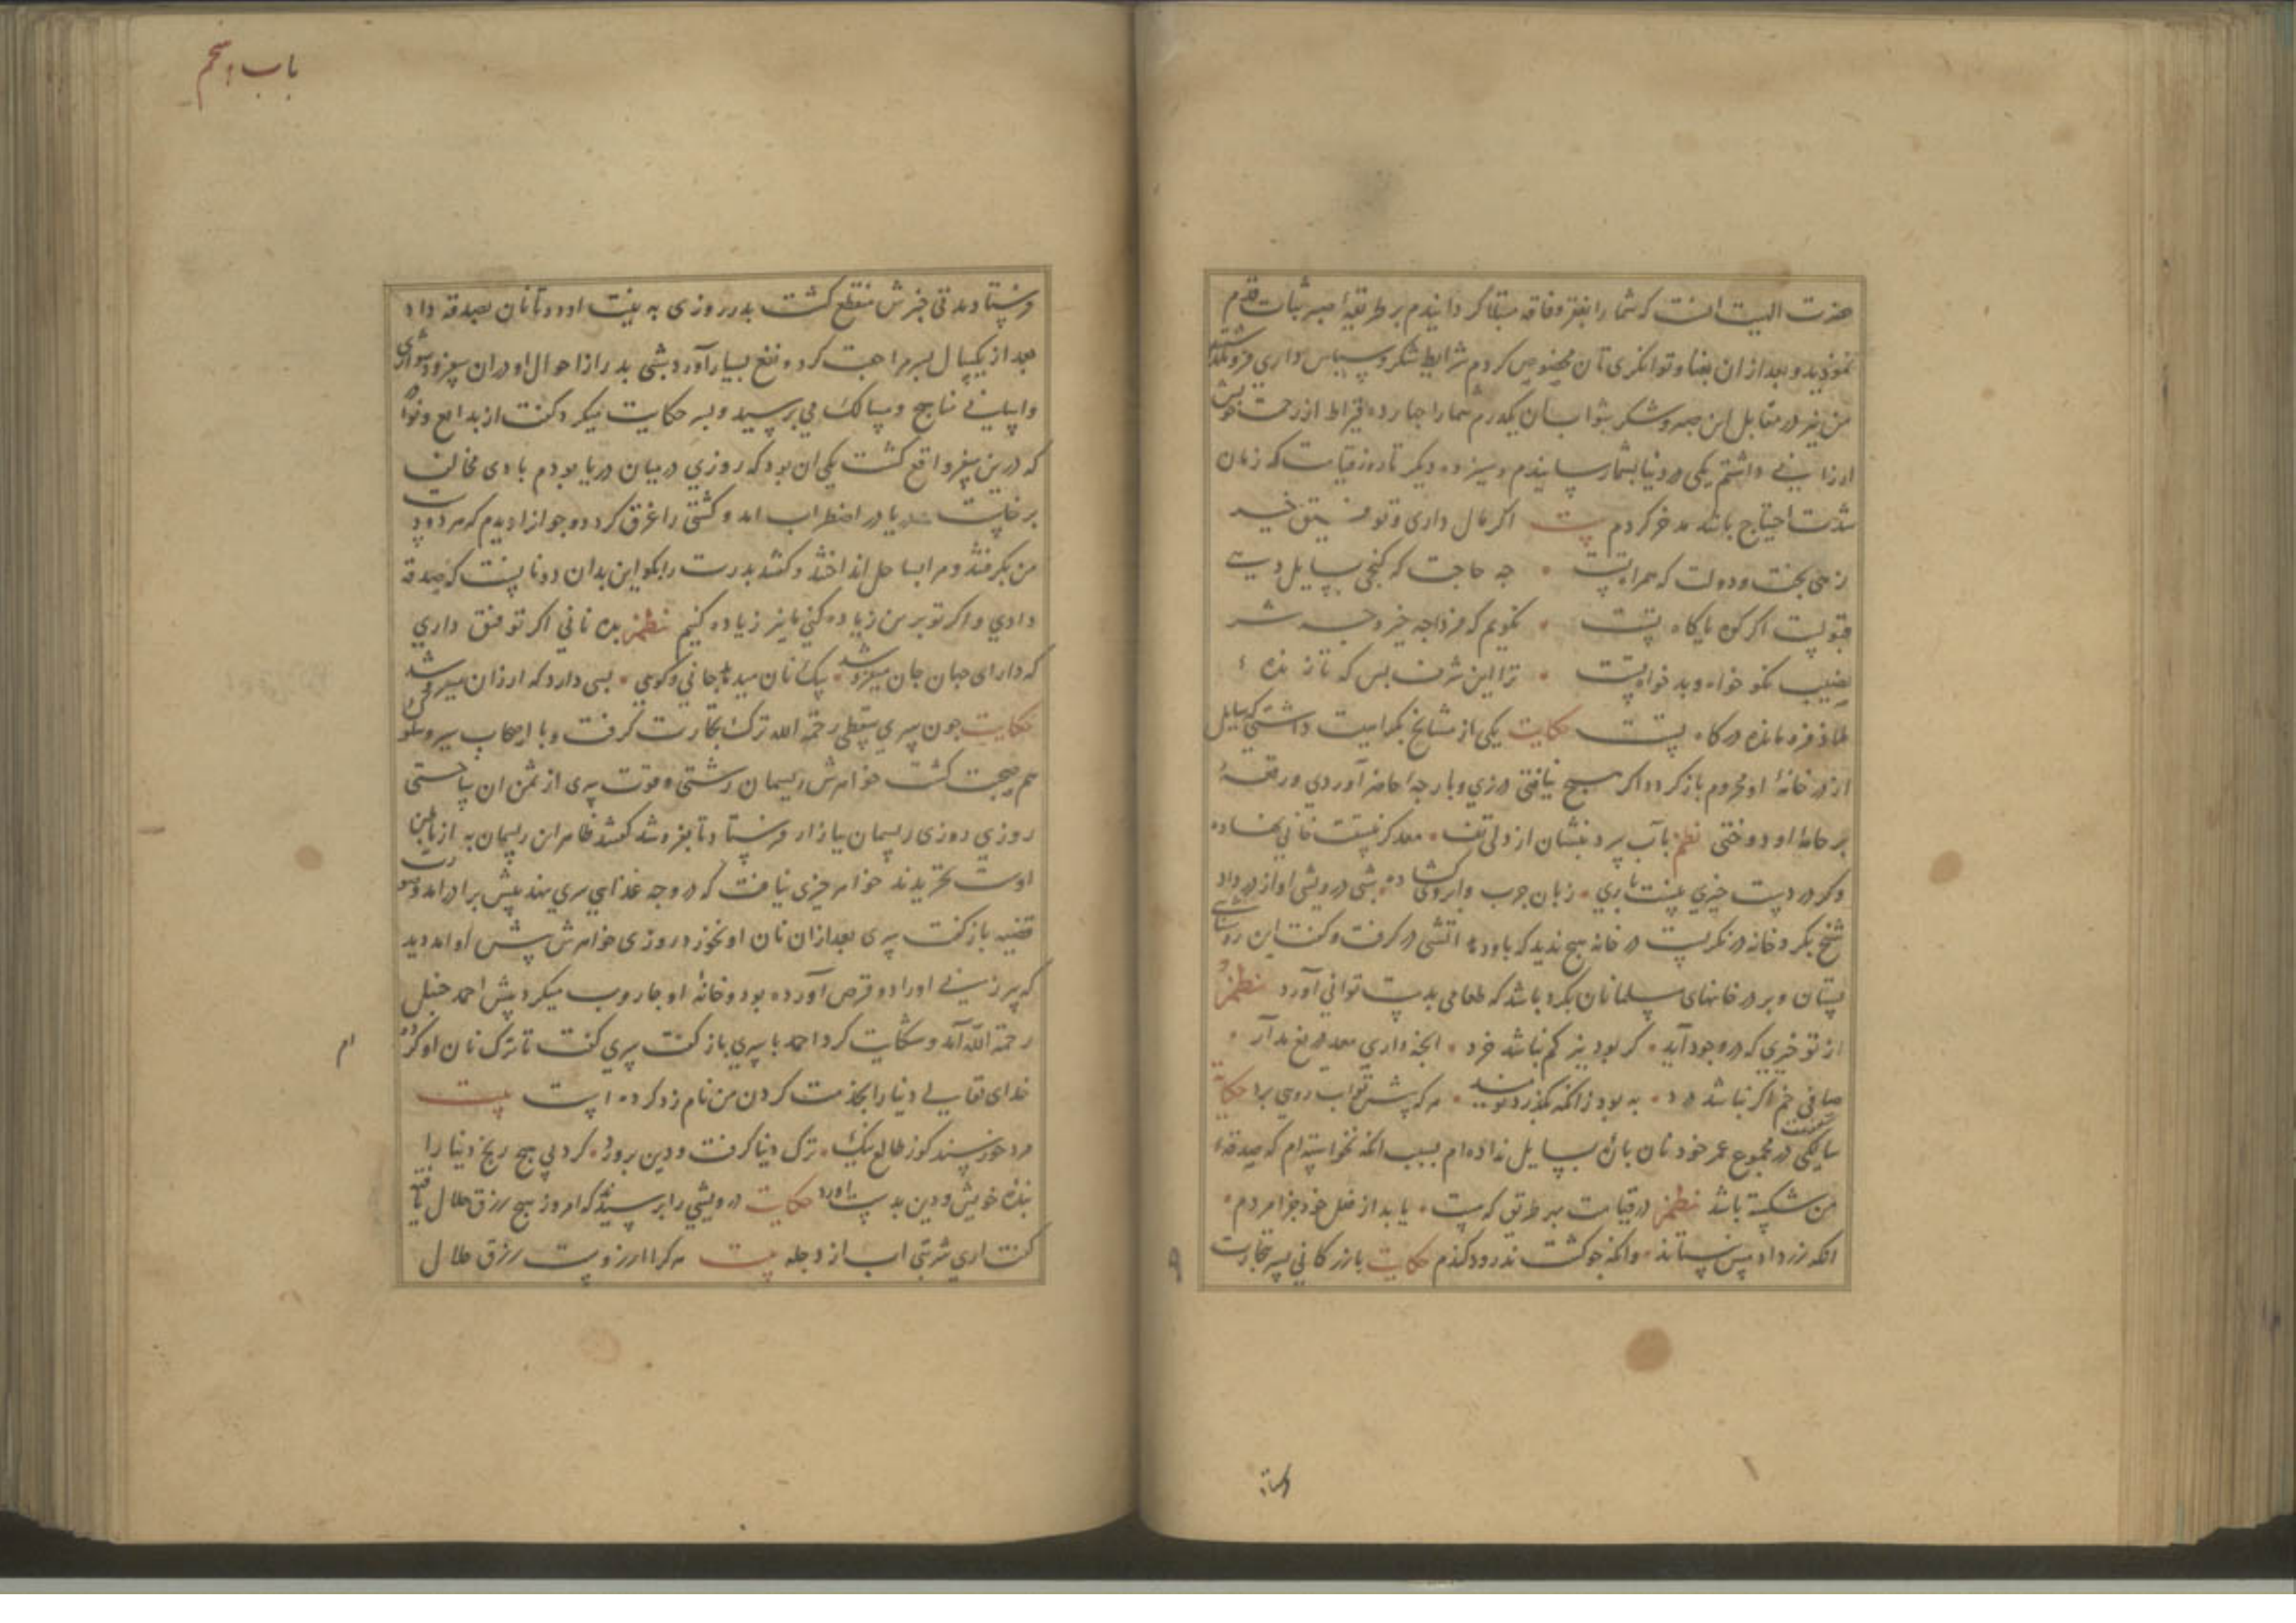 حضرت الهیت انست که شما را بفقر و فاقه مبتلا کردانیدم بر طریقهٔ صبر ثبات قدم
نمودید و بعد از ان بغنا و توانکری تان مخصوص کردم شرایط شکر و سپاس داری فرو نکذاشتید
من نیز در مقابل این صبر و شکر شما را چهارده قیراط از رحمت خویش
ارزانی داشتم یکی در دنیا بشما رسانیدم و سیزده دیکر تا روز قیامت که زمان
شدت احتیاج باشد مدخر کردم بیت اکر مال داری و توفیق خیر
زهی بخت و دولت که همراه تست • چه حاجت که کنجی بسایل دهی
قبولست اکر کوه یا کاه تست • نکویم که فردا چه خیر و چه شر
نصیب نکو خواه و بدخواه تست • ترا این شرف بس که تا زنده
ملاذ فرو مانده درکاه تست حکایت یکی از مشایخ کراهیت داشتی که سایل
از در خانهٔ او محروم باز کردد اکر هیچ نیافتی درزی و پارچه حاضر آوردی و رقعهٔ
بر جامهٔ او دوختی نظم بآب بر و بنشان از دلی تف •
وکر در دست چیزی نیست باری • زبان چرب و ابروی کشاده • شبی درویشی اواز در داد
شیخ بکرد خانه در نکریست در خانه هیچ ندید که باو دهد اتشی در کرفت و کفت این روشنایی
بستان و بر در خانهای مسلمانان بکرد باشد که طعامی بدست توانی آورد نظم
از تو خیری که در وجود آید • کر بود نیز کم نباشد خرد • انچه داری دریغ مدار •
صافی خم اکر نباشد درد • به بود زانکه بکذرد نومید • هر که پیشت روی برد حکایت
سالکی کفت در مجموع عمر خود نان پاره بسایل نداده ام بسبب انکه نخواسته ام که صدقهٔ
من شکسته باشد نظم در قیامت بهر طریق که هست • یابد از فعل خود جزا مردم •
انکه زر داد پس نستاند • وانکه جو کشت ندرود کندم حکایت بازرکانی پسر بتجارت
باب پنجم
فرستاد مدتی خبرش منقطع کشت پدر روزی به نیت او دو تا نان بصدقه داد
بعد از یکسال پسر مراجعت کرد و نفع بسیار آورد شبی پدر از احوال او در ان سفر و دشواری
و آسانی مناهج و مسالک می پرسید و پسر حکایت میکرد کفت از بدایع و نوادر
که درین سفر واقع کشت یکی ان بود که روزی در میان دریا بودم بادی مخالف
برخاست دریا در اضطراب امد و کشتی را غرق کرد دو جوانرا دیدم که هر دو دست
من بکرفتند و مرا بساحل انداختند و کفتند پدرت را بکو این بدان دو نانست که صدقه
دادی و اکر تو برین زیاده کنی ما نیز زیاده کنیم نظم بده نانی اکر توفیق داری
که دارای جهان جان میفروشد • یک نان میدهد جانی و کویی • بسی دارد که ارزان میفروشد
حکایت چون سری سقطی رحمة الله ترک تجارت کرفت و با اصحاب سیر و سلوک
هم صحبت کشت خواهرش ریسمان رشتی و قوت سری از ثمن ان ساختی
روزی ریسمان ببازار فرستاد تا بفروشد کفتند ظاهر این ریسمان به از باطن
اوست نخریدند خواهر چیزی نیافت که در وجه غذای سری نهد پیش برادر امد و صورت
قضیه باز کفت سری بعد از ان نان او نخورد روزی خواهرش پیش او امد دید
که پیرزنی اورا دو قرص آورده بود و خانهٔ او جاروب میکرد پیش احمد حنبل
رحمة الله آمد و شکایت کرد احمد با سری باز کفت سری کفت تا ترک نان او کرده ام
خدای تعالی دنیا را بخدمت کردن من نام زد کرده است بیت
مرد خرسند کوز طالع نیک • ترک دنیا کرفت و دین پرورد • کرد بی هیچ رنج دنیا را
بندهٔ خویش و دین بدست اورد حکایت درویشی را پرسیدند که امروز هیچ رزق حلال یافتی
کفت اری شربتی اب از دجله بیت هر کرا ارزوست رزق حلال